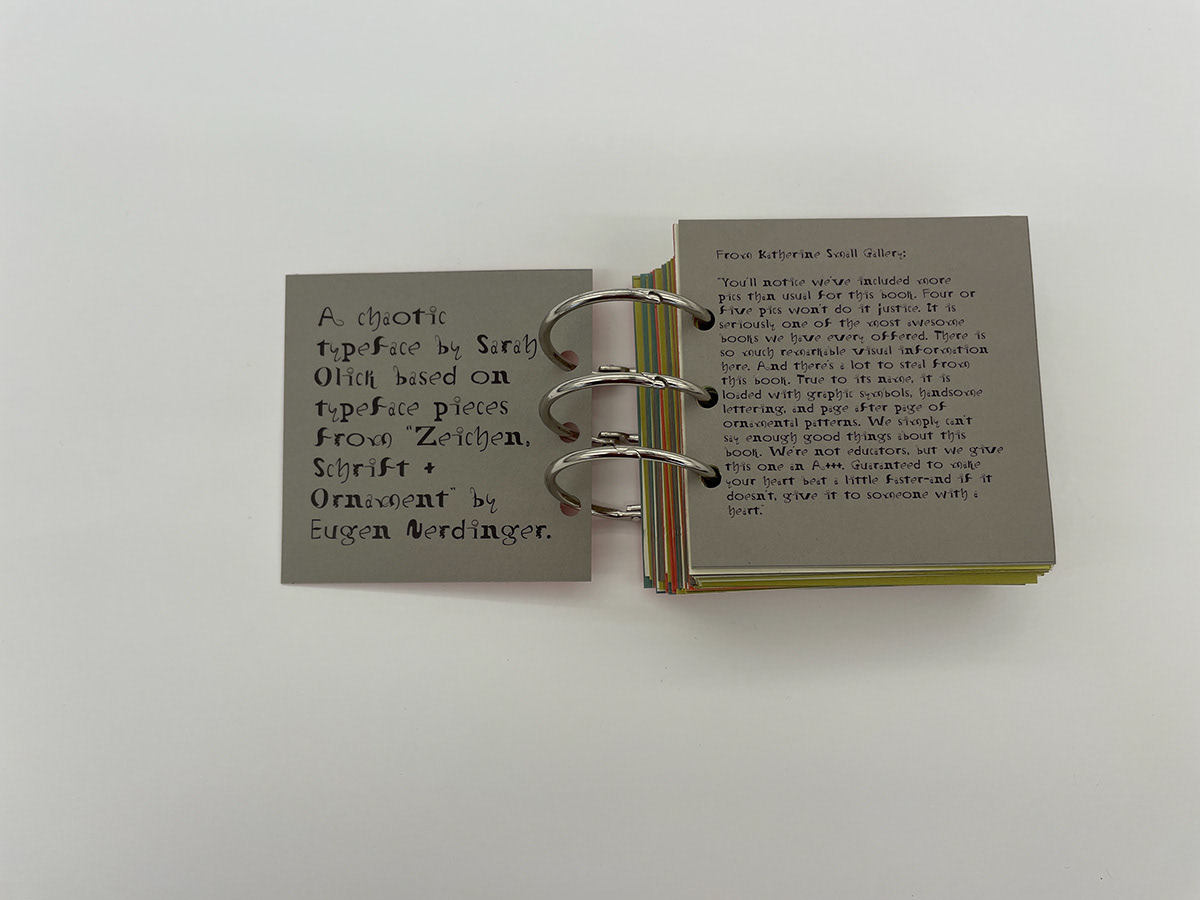 A chaotic
typeface by Sarah
Olick based on
typeface pieces
from "Zeichen,
Schrift +
Ornament" by
Eugen Nerdinger.
From Katherine Small Gallery:
"You'll notice we've included more
pics than usual for this book. Four or
five pics won't do it justice. It is
seriously one of the most awesome
books we have every offered. There is
so much remarkable visual information
here. And there's a lot to steal from
this book. True to its name, it is
loaded with graphic symbols, handsome
lettering, and page after page of
ornamental patterns. We simply can't
say enough good things about this
book. We're not educators, but we give
this one an A+++. Guaranteed to make
your heart beat a little faster—and if it
doesn't, give it to someone with a
heart."